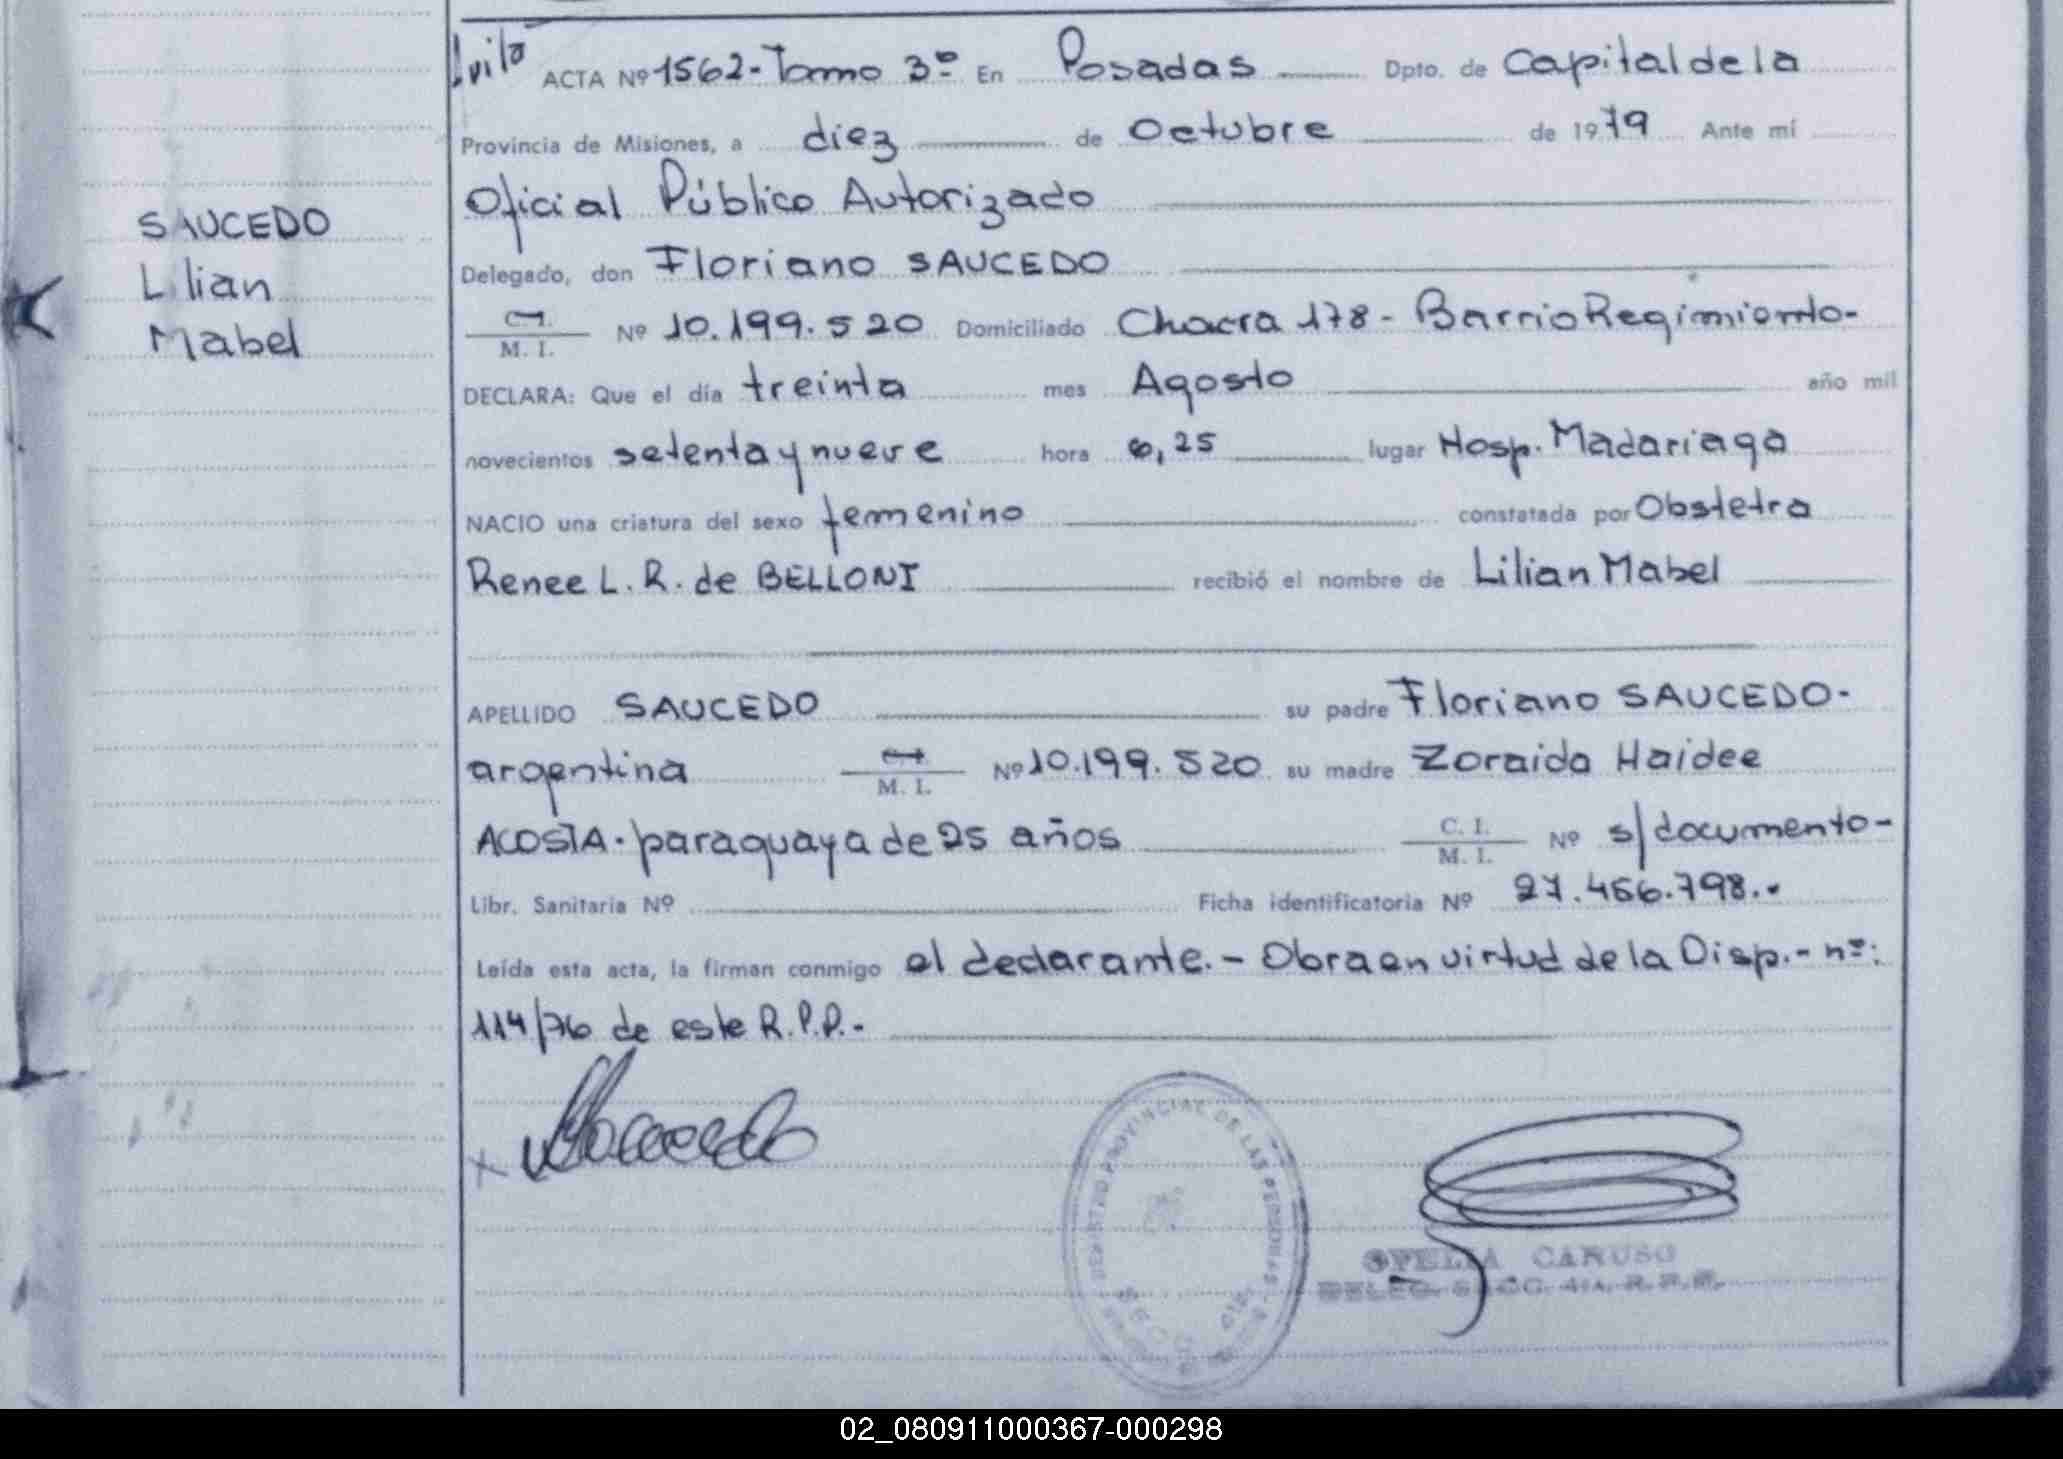 SAUCEDO
Lilian
Mabel
ACTA Nº 1562 - Tomo 3º En Posadas Dpto. de Capital de la
Provincia de Misiones, a diez de Octubre de 1979 Ante mí
Oficial Público Autorizado
Delegado, don Floriano SAUCEDO
C.I.
M. I. Nº 10.199.520 Domiciliado Chacra 178 - Barrio Regimiento -
DECLARA: Que el día treinta mes Agosto año mil
novecientos setenta y nueve hora 6,25 lugar Hosp. Madariaga
NACIO una criatura del sexo femenino constatada por Obstetra
Renee L. R. de BELLONI recibió el nombre de Lilian Mabel
APELLIDO SAUCEDO su padre Floriano SAUCEDO -
argentina M. I. Nº 10.199.520 su madre Zoraida Haidee
ACOSTA - paraguaya de 25 años C. I.
M. I. Nº s/documento -
Libr. Sanitaria Nº Ficha identificatoria Nº 27.456.798.-
Leída esta acta, la firman conmigo el declarante. - Obra en virtud de la Disp. - nº:
114/76 de este R.P.P. -
REGISTRO PROVINCIAL DE LAS PERSONAS
OFELIA CARUSO
DELEG. SECC. 4ta. R. P. P.
02_080911000367-000298